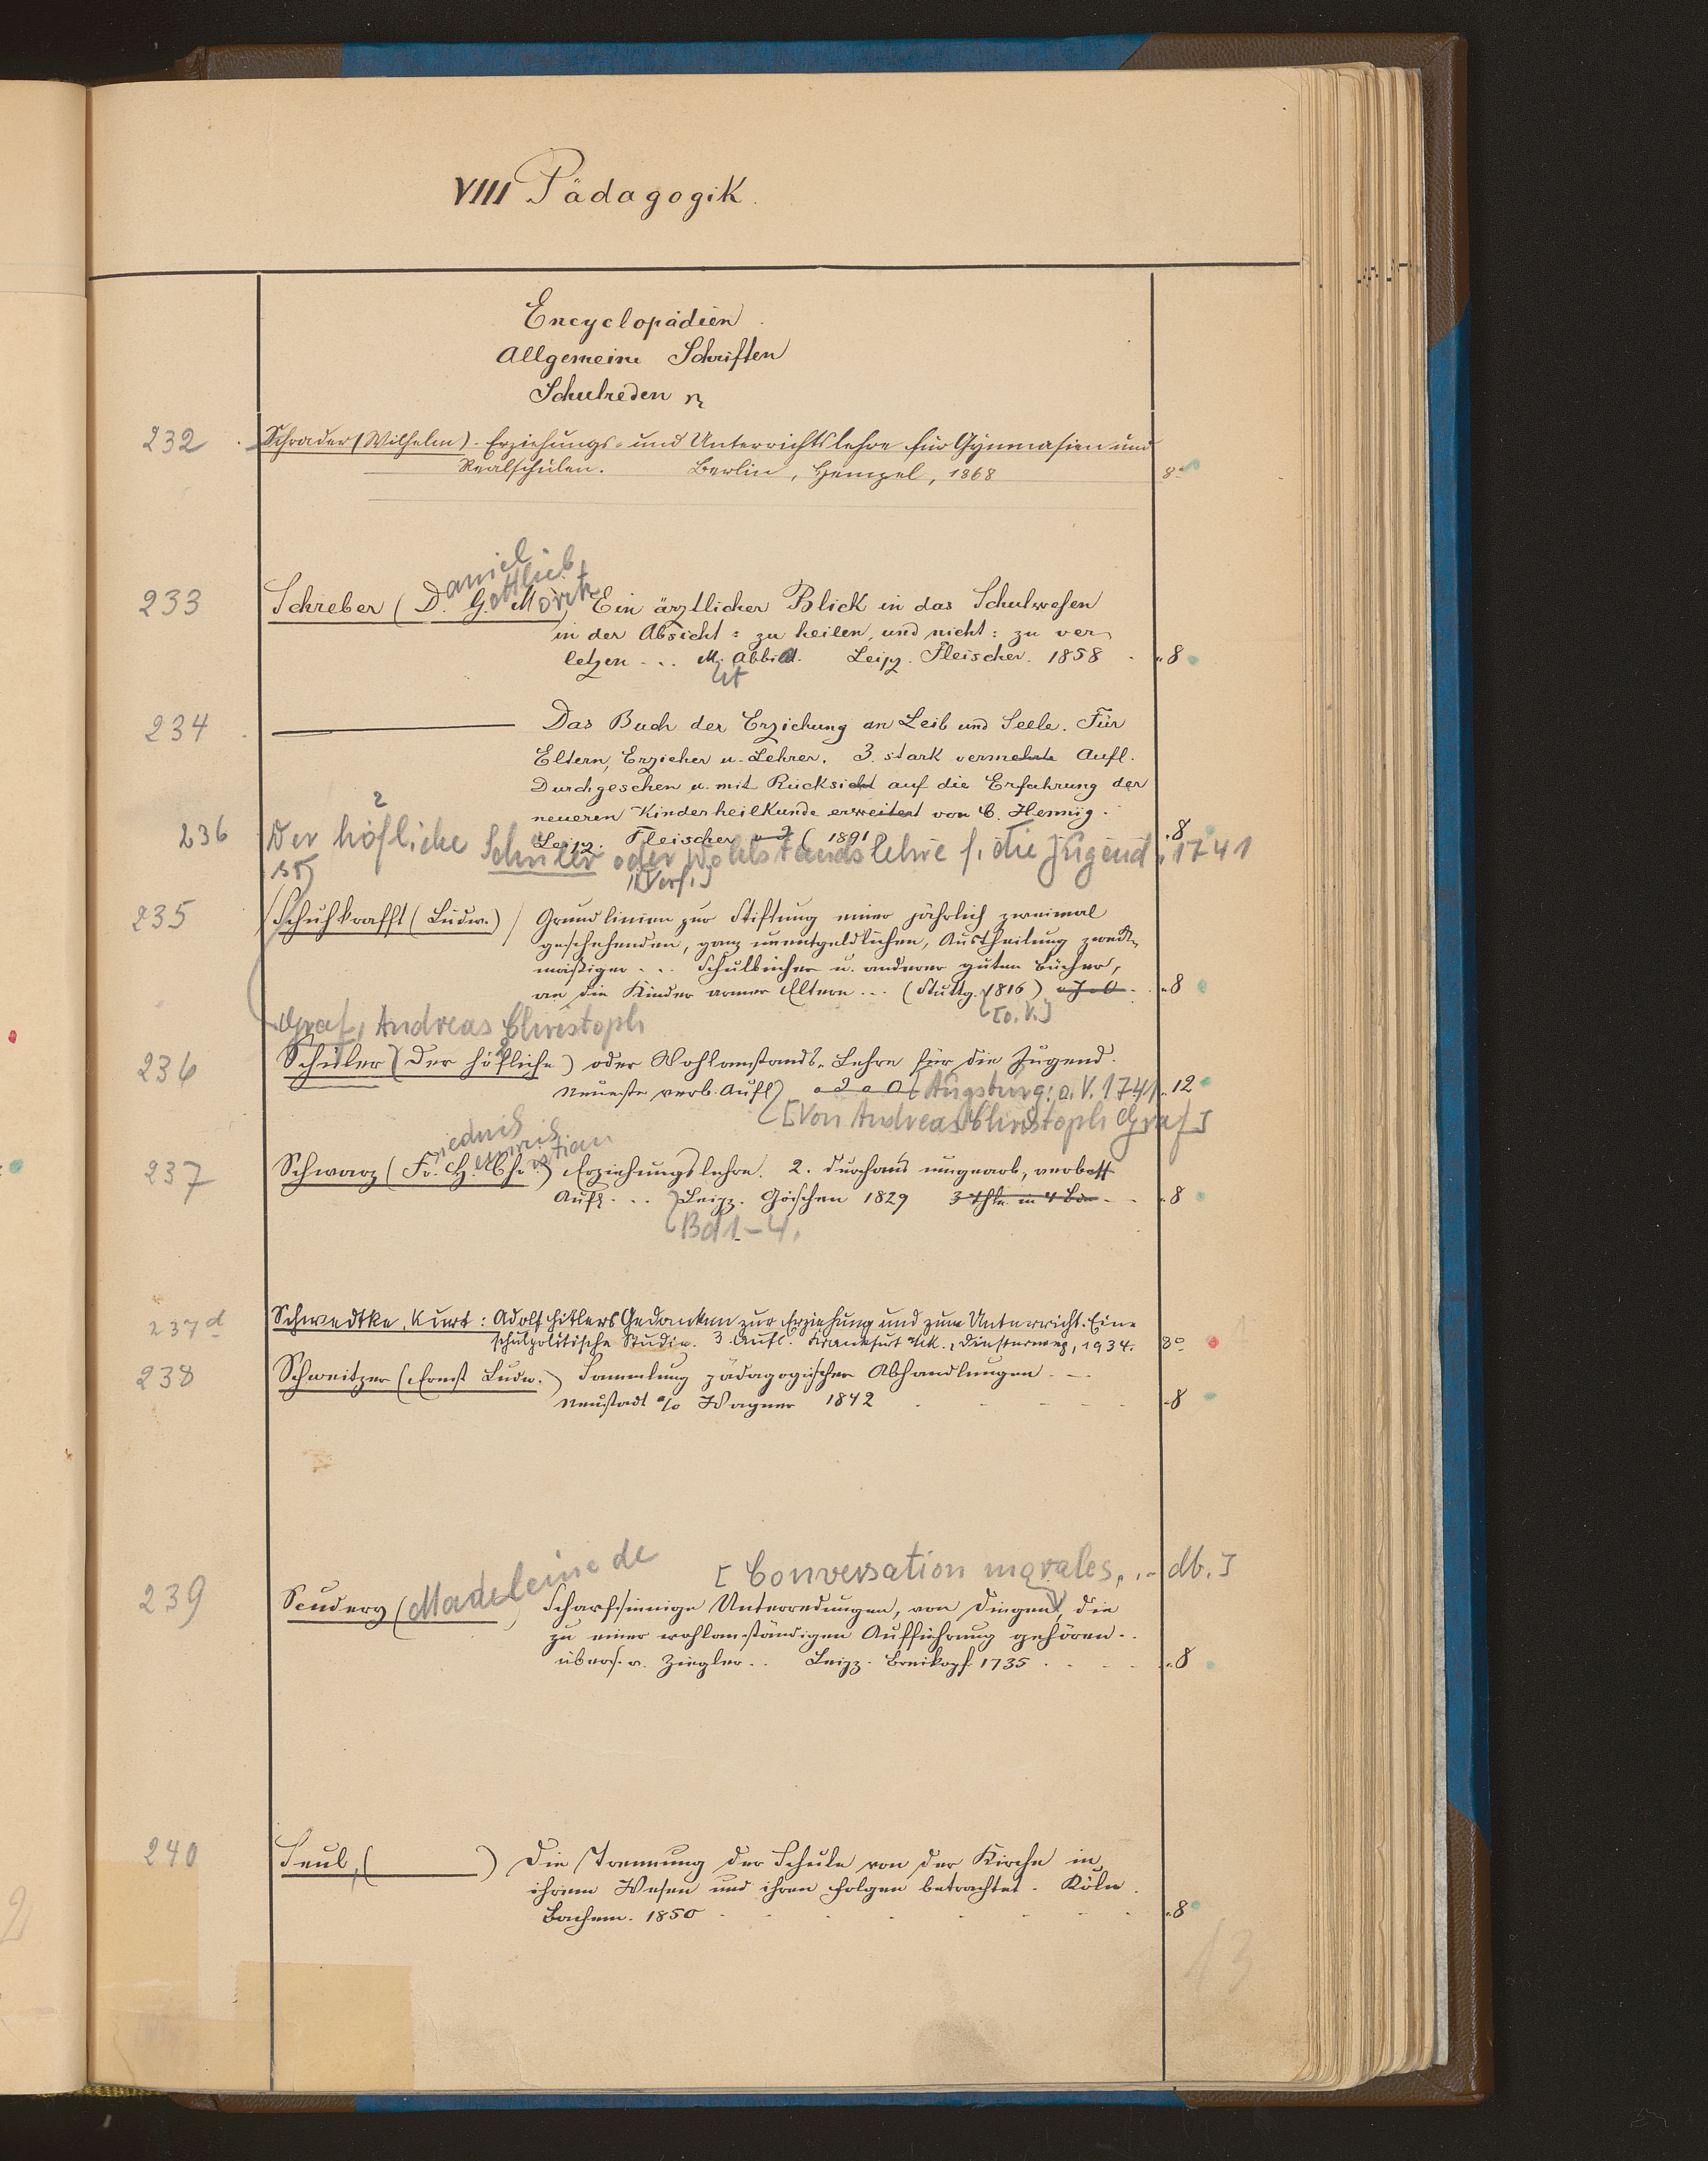 VIII Pädagogik.
Encyclopädien.
Allgemeine Schriften
Schulreden
232 Schrader (Wilhelm). Erziehungs- und Unterrichtslehre für Gymnasien und
Realschulen. Berlin, Hempel, 1868 8°
aniel
ottlieb
233 Schreber (D. G. Moritz) Ein ärztlicher Blick in das Schulwesen
in der Absicht: zu heilen, und nicht: zu ver-
letzen ... M. Abbild. Leipz. Fleischer. 1858 . "8
234 . ——— Das Buch der Erziehung an Leib und Seele. Für
Eltern, Erzieher u. Lehrer. 3. stark vermehrte Aufl.
Durchgesehen u. mit Rücksicht auf die Erfahrung der
neueren Kinderheilkunde erweitert von C. Hennig.
Leipz. Fleischer ( 1891 "8
236 Der höfliche Schüler oder Wohlstandslehre f. die Jugend 1741
[Verf.]
235 Schuhkrafft (Ludw.) Grundlinien zur Stiftung einer jährlich zweimal
geschehenden, ganz unentgeldlichen, Austheilung zweck-
mäßiger ... Schulbücher u. anderer guten Bücher,
an die Kinder armer Eltern ... (Stuttg. 1816) "8
[o. V.]
Graf, Andreas Christoph
236 Schüler (Der höfliche) oder Wohlanstands-Lehre für die Jugend.
Neueste verb. Aufl) Augsburg: o. V. 1741. "12
[Von Andreas Christoph Graf]
riedrich
einrich
istian
237 Schwarz (Fr. H. Chr.) Erziehungslehre. 2. durchaus umgearb, verbess
Aufl. ... Leipz. Göschen 1829 3 Thle in 4 Bde "8
Bd 1-4.
237d Schwedtke, Kurt: Adolf Hitlers Gedanken zur Erziehung und zum Unterricht. Eine
schulpolitische Studie. 3. Aufl. Frankfurt a/M., Diesterweg, 1934. 8°
238 Schweitzer (Ernst Ludw.) Sammlung pädagogischer Abhandlungen. -
Neustadt a/o Wagner 1842 "8
[Conversation morales, .. db.]
239 Scudery (Madeleine de) Scharfsinnige Unterredungen, von Dingen, die
zu einer wohlanständigen Aufführung gehören..
übers. v. Ziegler.. Leipz. Breikopf 1735 "8
240 Seul, ( ) Die Trennung der Schule von der Kirche in
ihrem Wesen und ihren Folgen betrachtet. Köln.
Bachem. 1850 "8
13